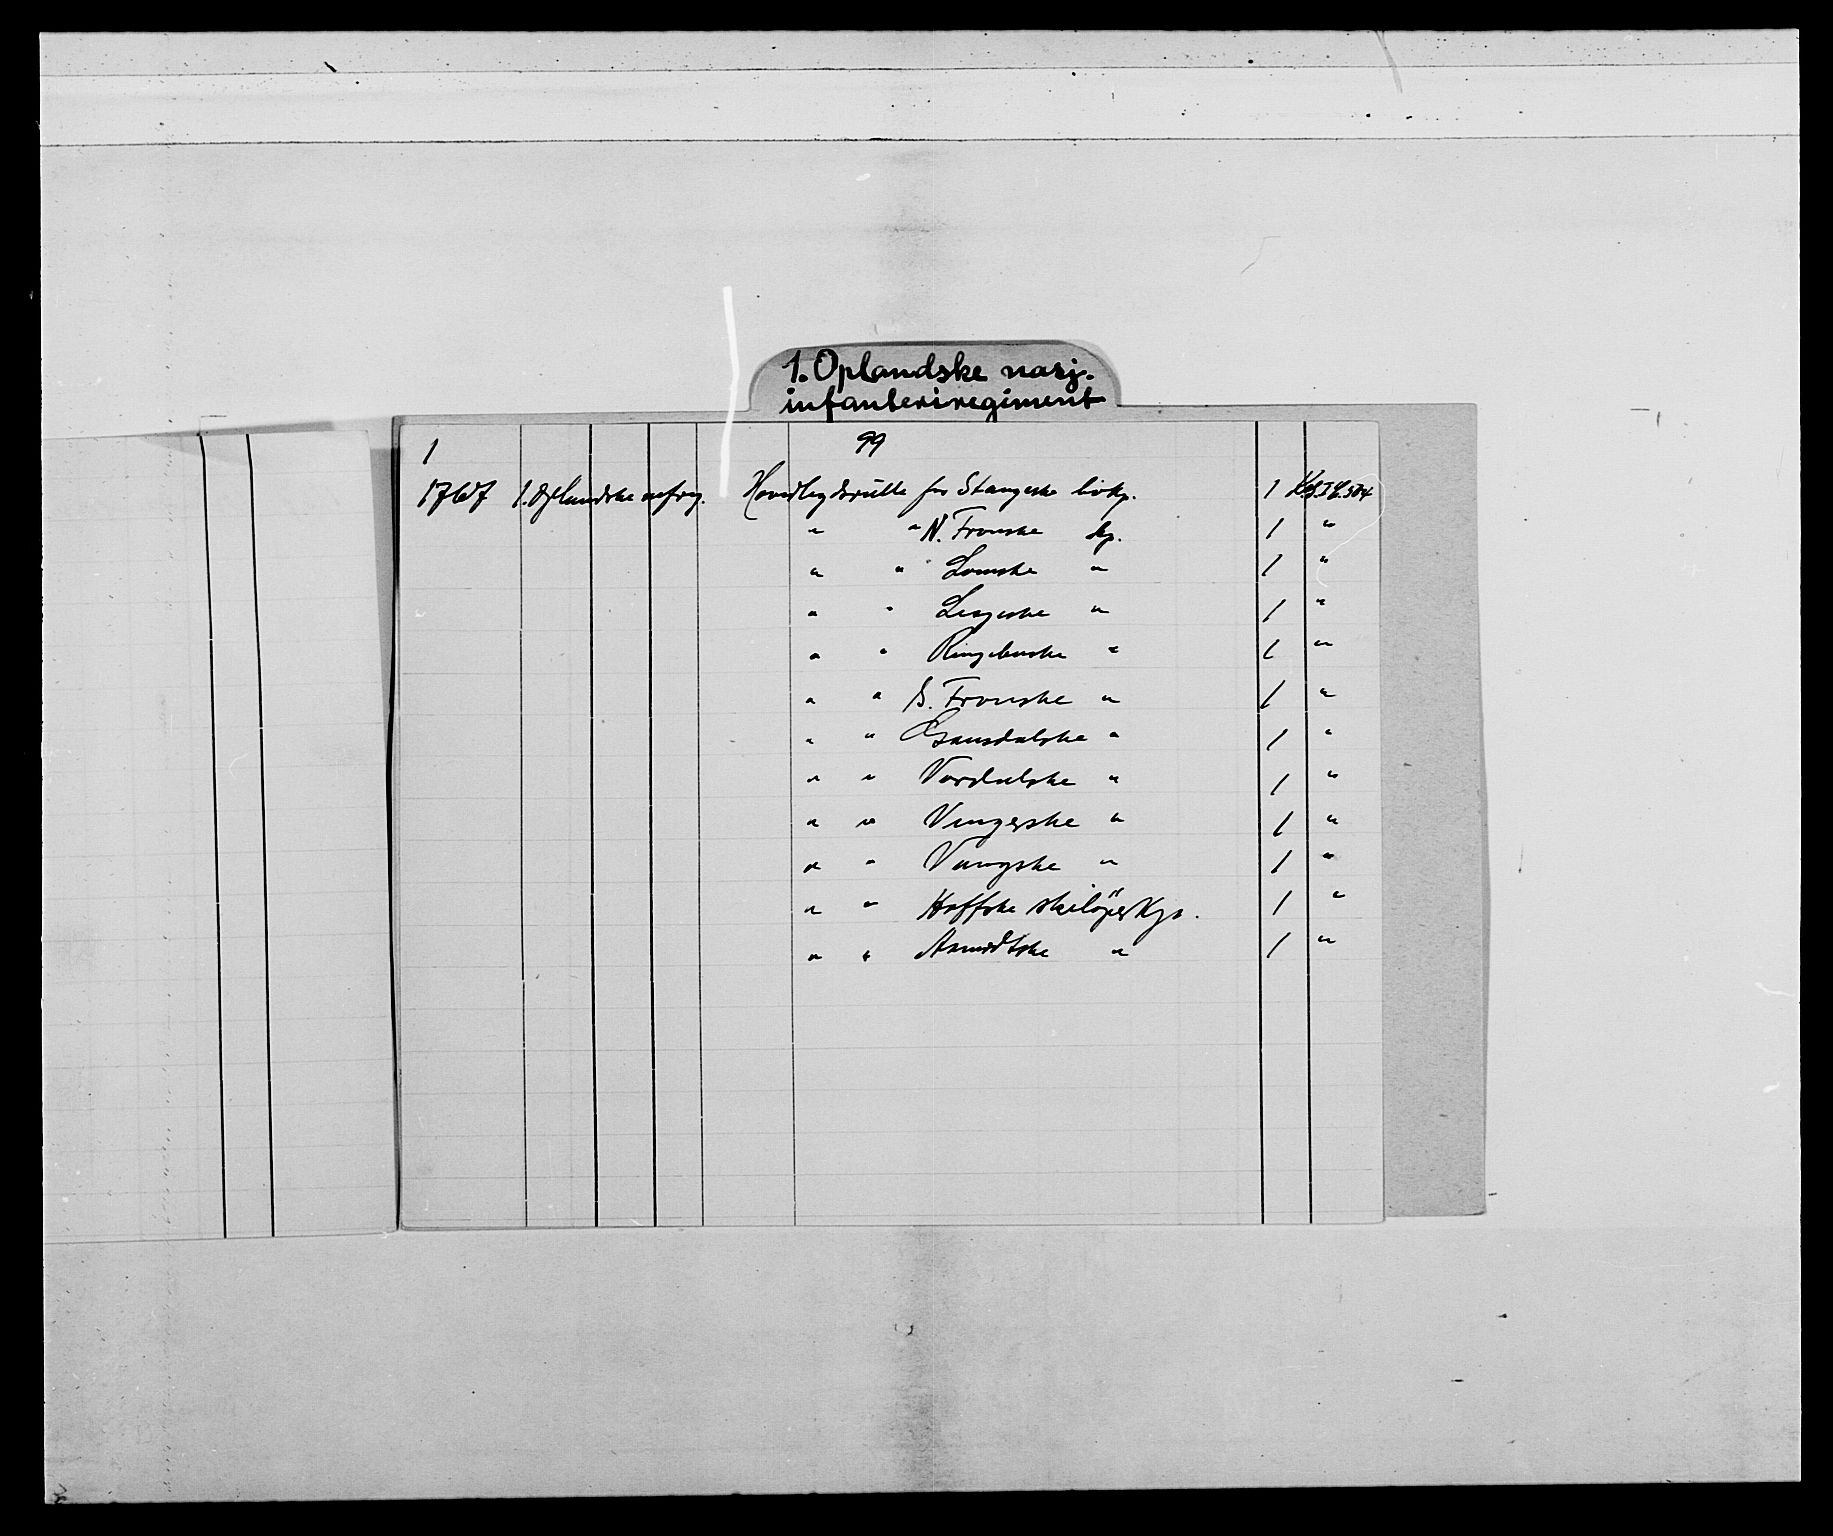 1. Oplandske nasj.
infanteriregiment
1 99
1767 1. Oplandske infreg. Hovedlegdsrulle for Stangeske livkp. 1
" " N. Fronske kp. 1 "
" " Lomske " 1 "
" " Lesjeske " 1 "
" " Ringebuske " 1 "
" " S. Fronske " 1 "
" " Gausdalske " 1 "
" " Vardalske " 1 "
" " Vingerske " 1 "
" " Vangske " 1 "
" " Hoffske skiløperkp. 1 "
" " Aamodtske " 1 "